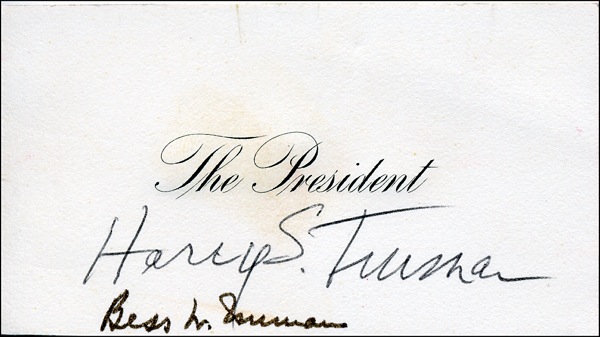 The President
Harry S. Truman
Bess W. Truman